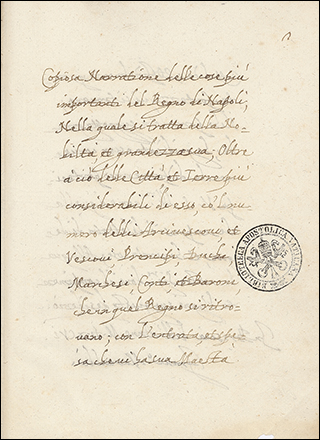 Copiosa Narratione delle cose piu
importanti del Regno di Napoli,
Nella quale si tratta della No-
biltà, et grandezza sua; Oltre
a ciò delle Città et Terre più
considerabili di esso, cō'l nu-
mero delli Arcivescovi et
Vescovi Prencipi, Duchi
Marchesi, Conti et Baroni
che in quel Regno si ritro-
vano; con l'entrata et spe-
sa che vi ha sua Maestà
BIBLIOTECA APOSTOLICA VATICANA